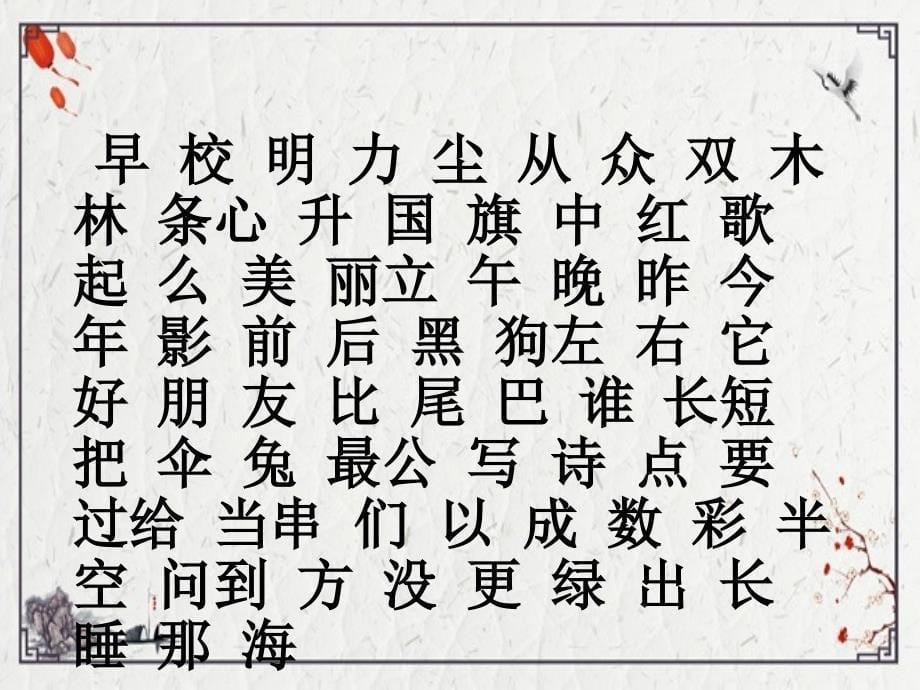 早 校 明 力 尘 从 众 双 木
林 条心 升 国 旗 中 红 歌
起 么 美 丽立 午 晚 昨 今
年 影 前 后 黑 狗左 右 它
好 朋 友 比 尾 巴 谁 长短
把 伞 兔 最公 写 诗 点 要
过给 当串 们 以 成 数 彩 半
空 问到 方 没 更 绿 出 长
睡 那 海